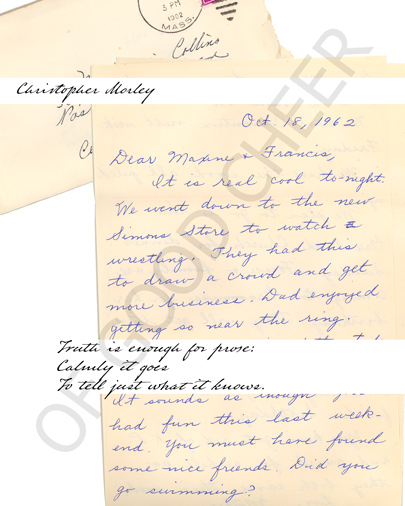 3 PM
1962
MASS.
Collins
Christopher Morley
Oct 18, 1962
Dear Maxine & Francis,
It is real cool to-night.
We went down to the new
Simons Store to watch a
wrestling. They had this
to draw a crowd and get
more business. Dad enjoyed
getting so near the ring.
Truth is enough for prose:
Calmly it goes
To tell just what it knows.
It sounds as though
had fun this last week-
end. You must have found
some nice friends. Did you
go swimming?
OF GOOD CHEER